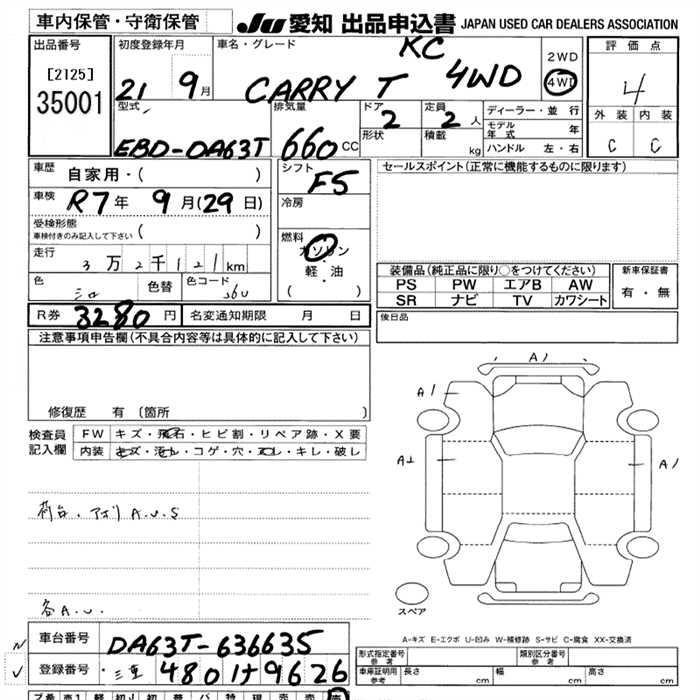 車内保管・守衛保管 JU 愛知 出品申込書 JAPAN USED CAR DEALERS ASSOCIATION
出品番号 初度登録年月 車名・グレード 評価点
[2125] 21 9月 CARRY T KC 4WD 2WD 4WD 4
35001 外装 内装
型式 排気量 ドア 2 定員 2人 ディーラー・並行
モデル年式 年
形状 積載 kg ハンドル 左・右 C C
EBD-DA63T 660 CC
車歴 自家用・( ) シフト F5 セールスポイント(正常に機能するものに限ります)
車検 R7年 9月(29日) 冷房
受検形態
車検付きのみ記入して下さい ( )
燃料 ガソリン
・
軽・油
( )
走行 3万2千121km
装備品(純正品に限り○をつけてください) 新車保証書
色 色替 色コード 26U PS PW エアB AW 有・無
SR ナビ TV カワシート
R券 3280円 名変通知期限 月 日 後日品
注意事項申告欄(不具合内容等は具体的に記入して下さい)
修復歴 有 (箇所 )
検査員 FW キズ・飛石・ヒビ割・リペア跡・X要
記入欄 内装 キズ・汚レ・コゲ・穴・スレ・キレ・破レ
A1
A1
A2 A1
荷台・アオリ A.U.S
スペア
各A.U.
A-キズ E-エクボ U-凹み W-補修跡 S-サビ C-腐食 XX-交換済
車台番号 DA63T-636635
登録番号 三重 480 け 9626
形式指定番号 参考 類別区分番号 参考
車庫証明用 参考 長さ cm 幅 cm 高さ cm